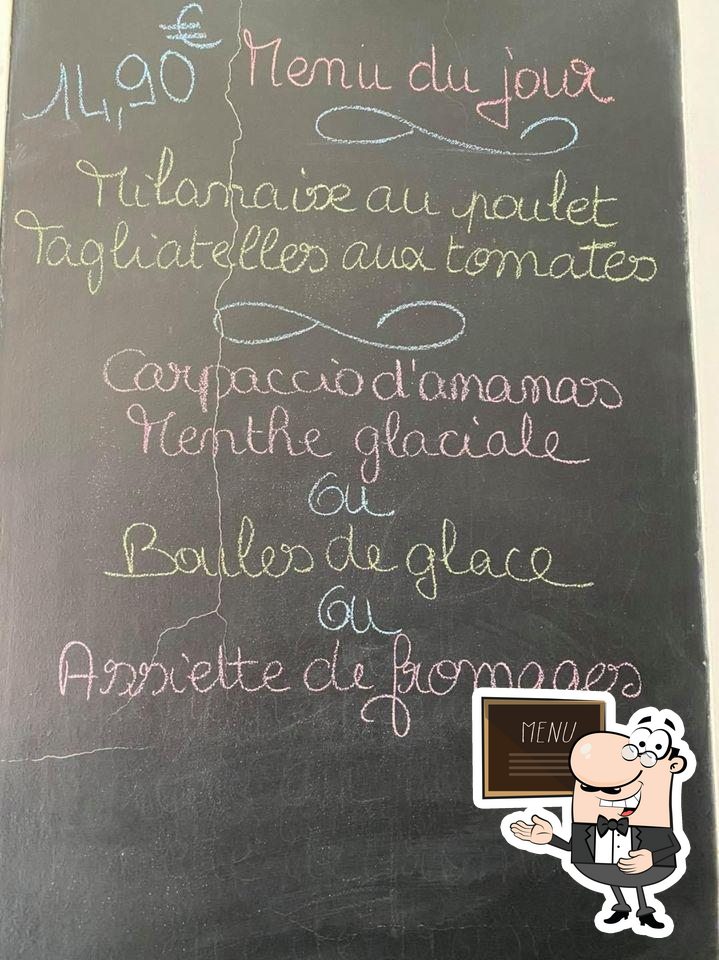 14,90 € Menu du jour
Milanaise au poulet
Tagliatelles aux tomates
Carpaccio d'ananas
Menthe glaciale
Ou
Boules de glace
Ou
Assiette de fromages
MENU